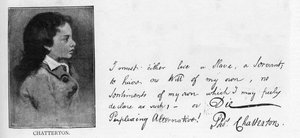 CHATTERTON.
I must either live a Slave, a Servant;
to have no Will of my own, no
Sentiments of my own which I may freely
declare as such; — or Die
Perplexing Alternative!
Tho.s Chatterton.